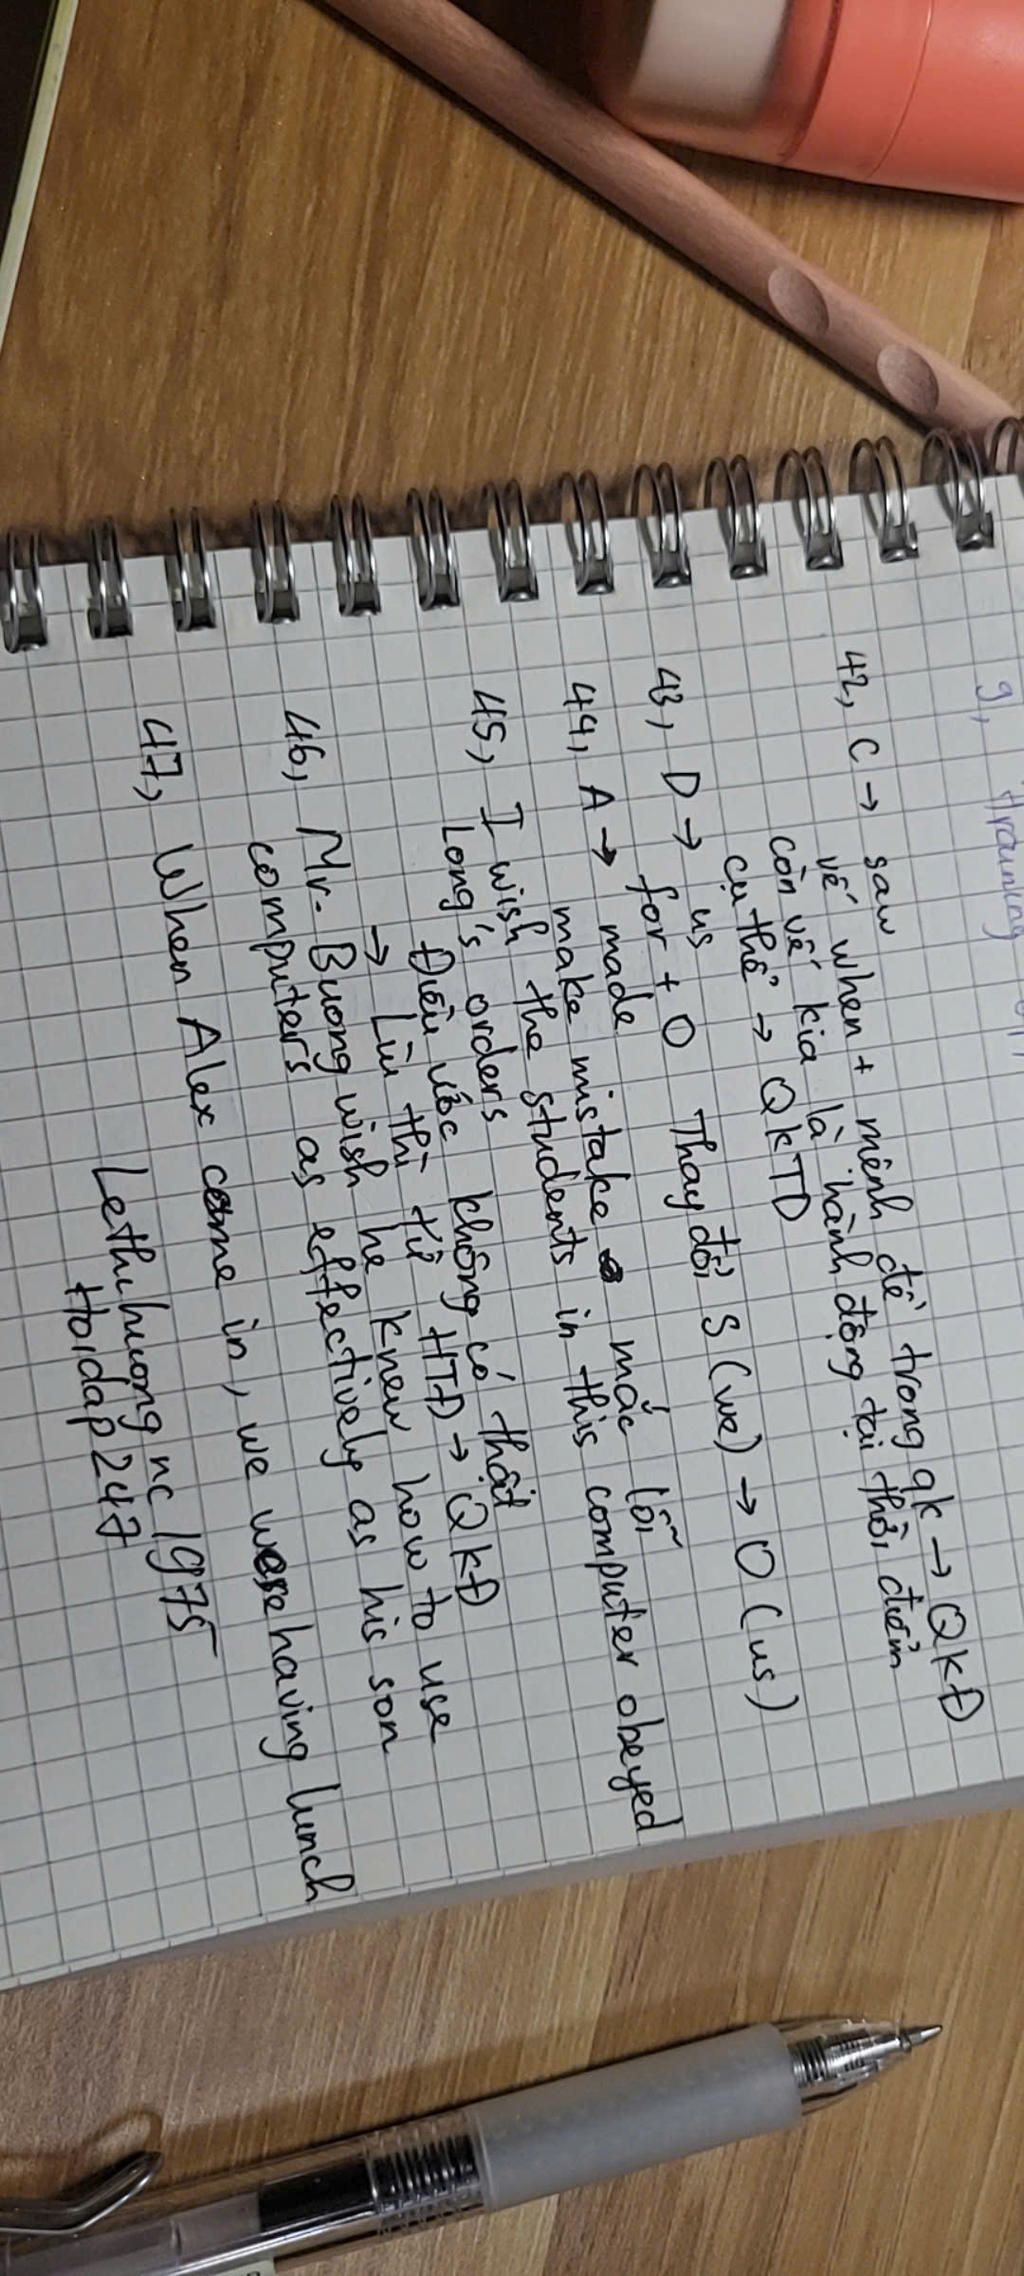 9, training
42, C → saw
vế when + mệnh đề trong qk → QKĐ
còn vế kia là hành động tại thời điểm
cụ thể → QKTD
43, D → us
for + O Thay đổi S (we) → O (us)
44, A → made
make mistake mắc lỗi
45, I wish the students in this computer obeyed
Long's orders
Điều ước không có thật
→ Lùi thì từ HTĐ → QKĐ
46, Mr. Buong wish he knew how to use
computers as effectively as his son
47, When Alex came in, we were having lunch
Lethihuong nc 1975
Hoidap 247